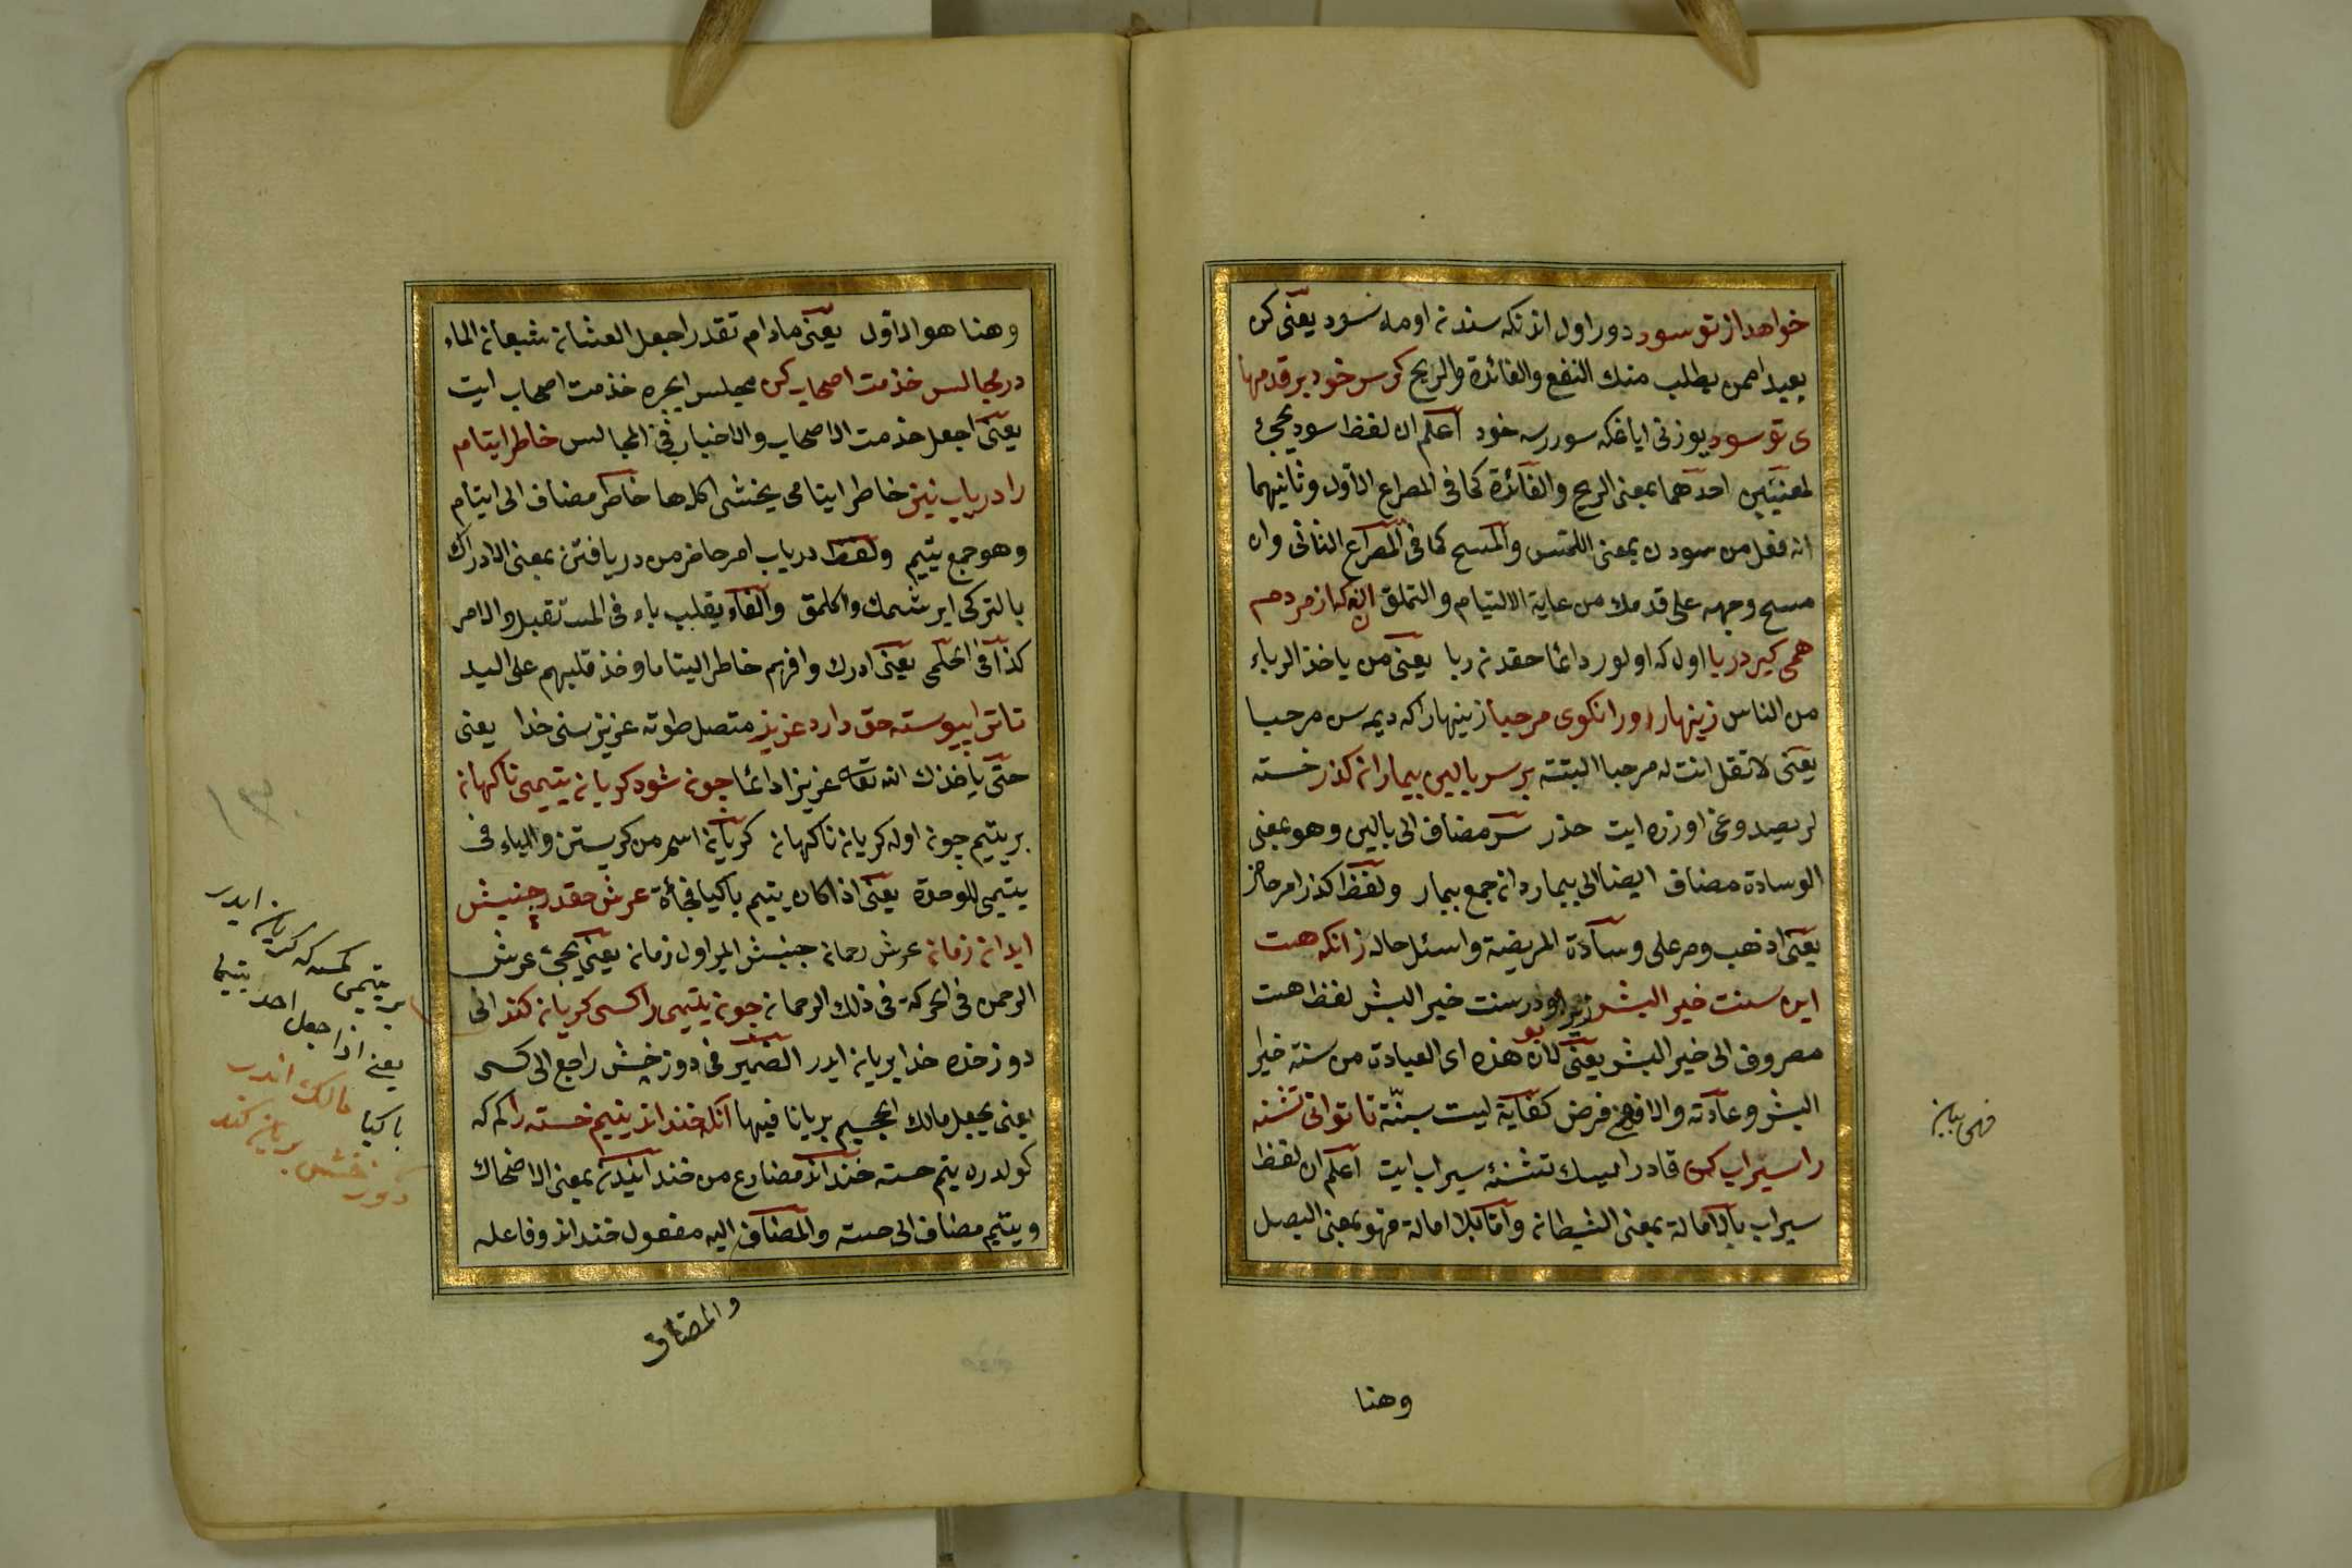 خواهد از تو سود دور اول اندنكه سندن اومه سود يعنى كن
بعيدا ممن يطلب منك النفع والفائدة والربح كرسر خود بر قدمها
ى تو سود يوزنى اياغكه سوررسه خود اعلم ان لفظ سود يجئ
لمعنيين احدهما بمعنى الربح والفائدة كما فى المصراع الاول وثانيهما
انه فعل من سودن بمعنى اللمس والمسح كما فى المصراع الثانى وان
مسح وجهه على قدمك من غاية الالتيام والتملق آنكه از مردم
همى كير دربا اول كه اولور دائما حقدن ربا يعنى من ياخذ الرباء
من الناس زينهار اورا نكوى مرحبا زينهار اكه ديمه سن مرحبا
يعنى لا تقل انت له مرحبا البتته برسر بالين بيماران كذر خسته
لر يصدوغى اوزره ايت حذر سر مضاف الى بالين وهو بمعنى
الوسادة مضاف ايضا الى بيماردان جمع بيمار ولفظ كذر امر حاضر
يعنى اذهب ومر على وسادة المريضة واسئل حاله زانكه هست
اين سنت خير البشر زيرا بودر سنت خير البشر لفظ هست
مصروف الى خير البشر يعنى لان هذه اى العيادة من سنة خير
البشر وعادته والافهى فرض كفاية ليت سنّة تا توانى تشنه
را سيراب كن قادر ايسك تشنئه سيراب ايت اعلم ان لفظ
سيراب بالامالة بمعنى الشيطان واما بلا امالة فهو بمعنى البصل
وهنا
وهنا هو الاول يعنى مادام تقدر اجعل العثان شبعان الماء
در مجالس خذمت اصحاب كن مجلس ايچره خذمت اصحاب ايت
يعنى اجعل خذمت الاصحاب والاخيار فى المجالس خاطر ايتام
را درياب نيز خاطر ايتامى يخشى اكلهها خاطر مضاف الى ايتام
وهو جمع يتيم ولفظ درياب امر حاضر من دريافتن بمعنى الادراك
بالتركى ايرشمك واكلمق والفاء يقلب باء فى المستقبل والامر
كذا فى الحلمى يعنى ادرك وافهم خاطر اليتاما وخذ قلبهم على اليد
تا ترا پيوسته حق دارد عزيز متصل طوته عزيز سنى خدا يعنى
حتى ياخذك الله تعالى عزيزا دائما چون شود كريان يتيمى ناكهان
بر يتيم چون اوله كريان ناكهان كريان اسم من كريستن والياء فى
يتيمى للوحدة يعنى اذا كان يتيم باكيا فجأة عرش حقدر جنبش
ايد ان زمان عرش رحمان جنبش ايلر اول زمان يعنى يجئ عرش
الرحمن فى الحركة فى ذلك الرحمان چون يتيمى را كسى كريان كند انى
دوزخده خدا بريان ايدر الضمير فى دوزخش راجع الى كسى
يعنى يجعل مالك الجحيم بريانا فيها آنكه خنداند يتيم خسته را كم كه
كولدره يتم خسته خنداند مضارع من خندانيدن بمعنى الاضحاك
ويتيم مضاف الى خسته والمضاف اليه مفعول خنداند وفاعله
والمضاف
بر يتيمى كمسه كه كريان ايدر
يعنى اذا جعل احد يتيما
باكيا مالك اندر
دوزخش بريان كند